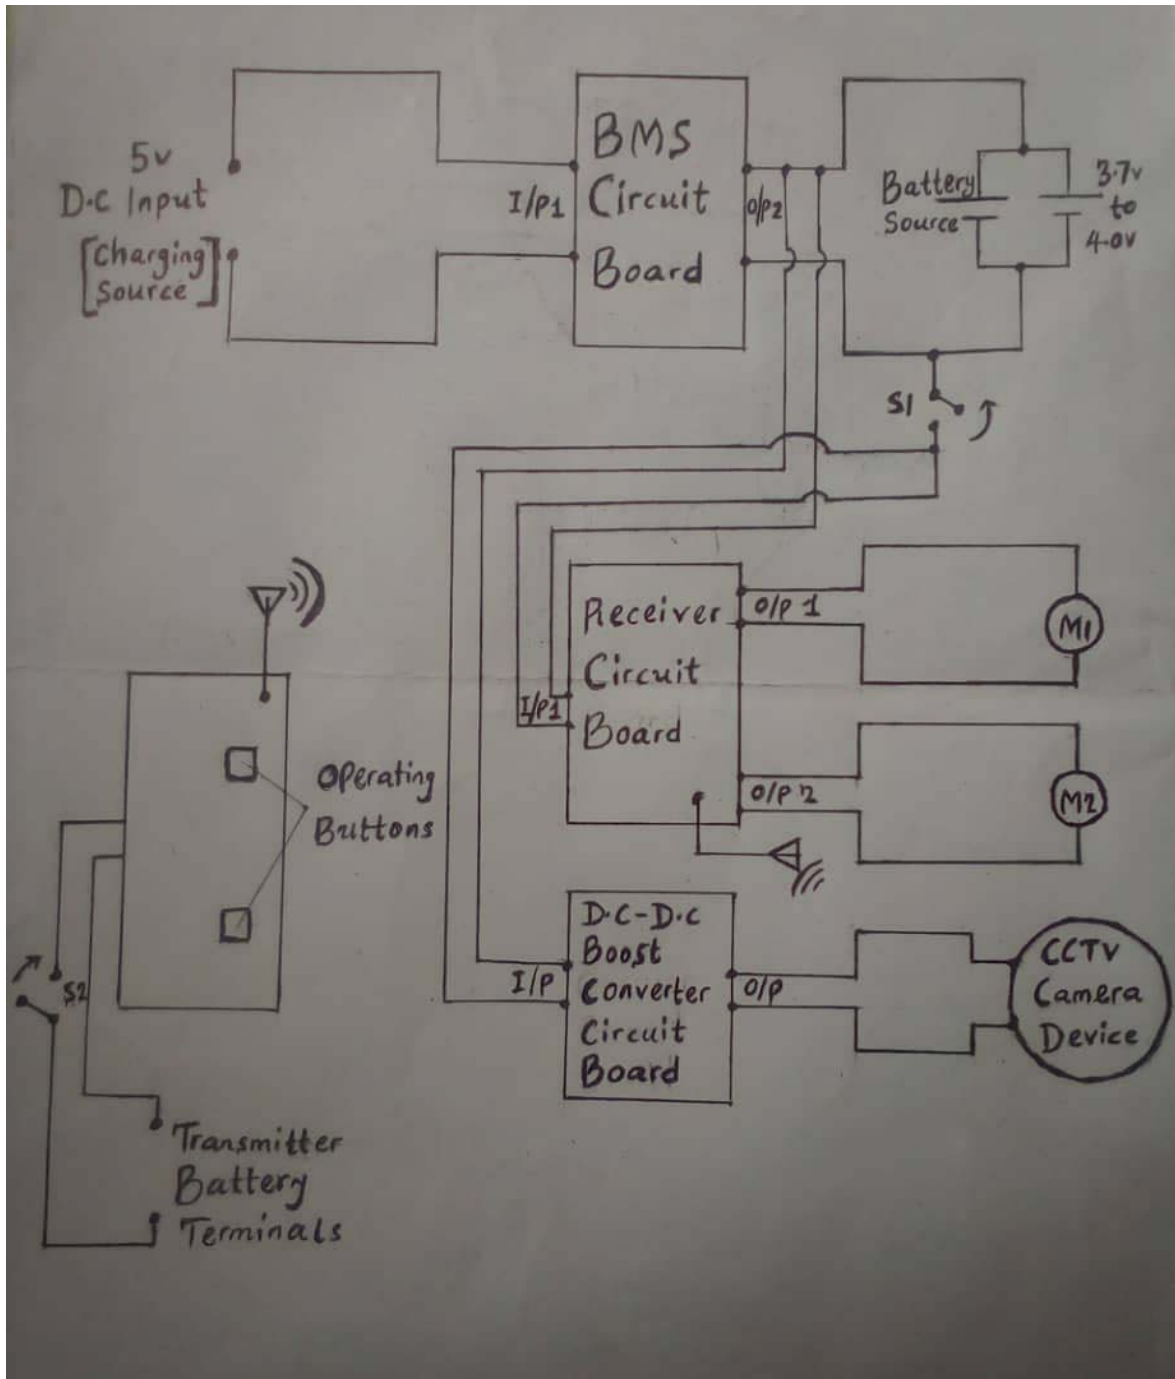 5v
D.C Input
[Charging
Source]
I/P1
BMS
Circuit
Board
O/P2
Battery
Source
3.7v
to
4.0v
S1
Receiver
Circuit
Board
I/P1
O/P 1
M1
O/P 2
M2
Operating
Buttons
S2
Transmitter
Battery
Terminals
D.C-D.C
Boost
Converter
Circuit
Board
I/P
O/P
CCTV
Camera
Device